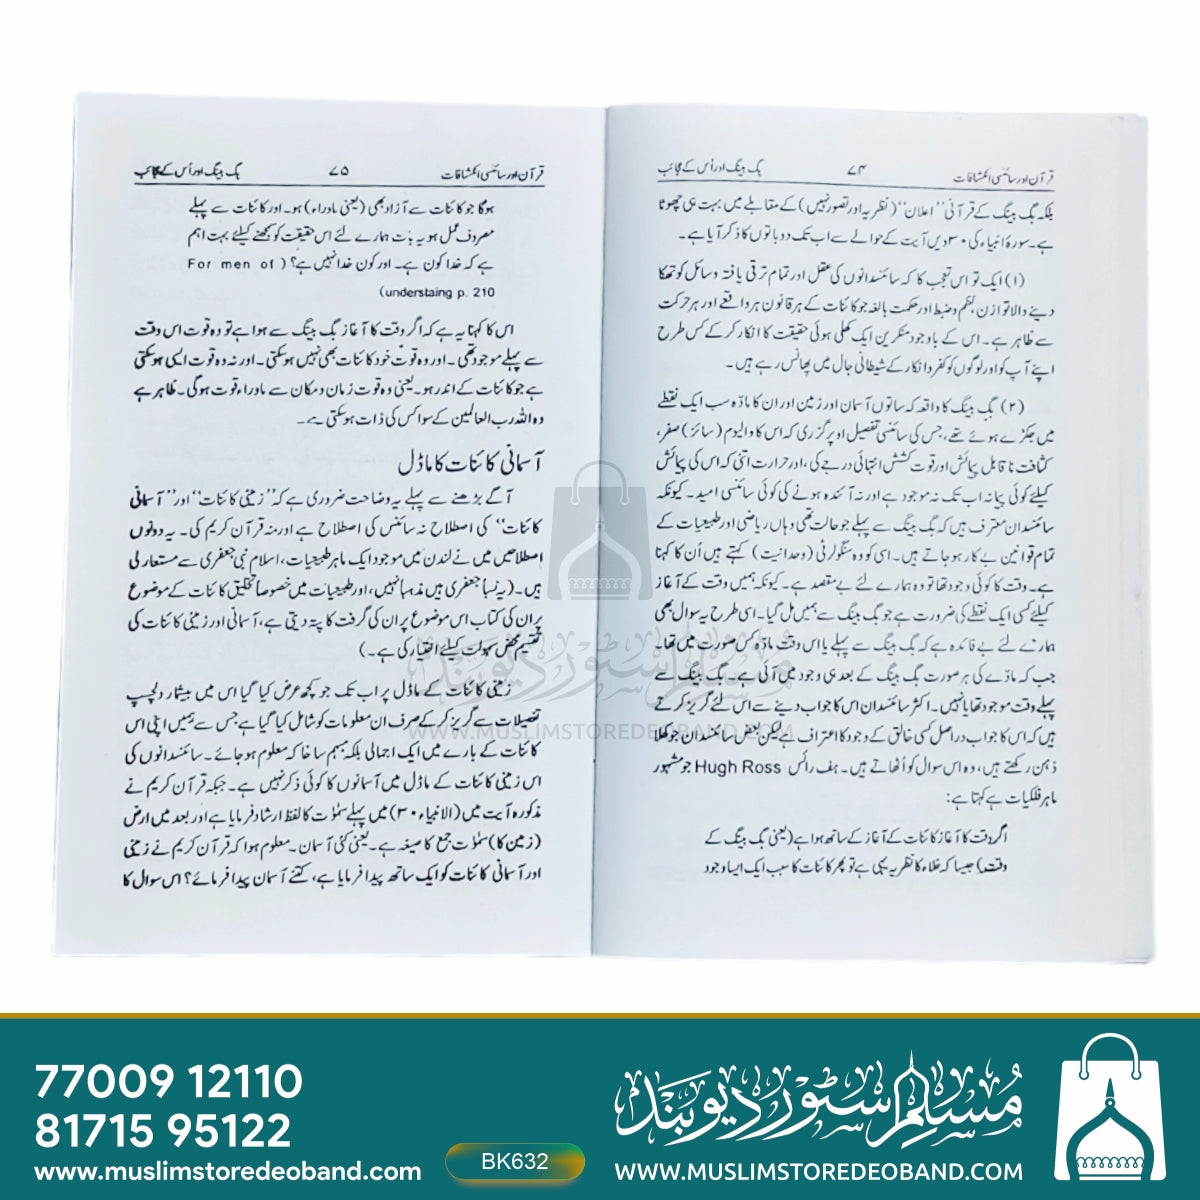 قرآن اور سائنسی انکشافات ۷۴ بگ بینگ اور اُس کے عجائب
بلکہ بگ بینگ کے قرآنی "اعلان" (نظریہ اور تصور نہیں) کے مقابلے میں بہت ہی چھوٹا
ہے۔ سورۂ انبیاء کی ۳۰ دیں آیت کے حوالے سے اب تک دو باتوں کا ذکر آیا ہے۔
(۱) ایک تو اس تعجب کا کہ سائنسدانوں کی عقل اور تمام ترقی یافتہ وسائل کو تھکا
دینے والا توازن، نظم و ضبط اور حکمت بالغہ جو کائنات کے ہر قانون ہر واقعے اور ہر حرکت
سے ظاہر ہے۔ اس کے باوجود منکرین ایک کھلی ہوئی حقیقت کا انکار کر کے کس طرح
اپنے آپ کو اور لوگوں کو کفر و انکار کے شیطانی جال میں پھانس رہے ہیں۔
(۲) بگ بینگ کا واقعہ کہ ساتوں آسمان اور زمین اور ان کا مادّہ سب ایک نقطے
میں جکڑے ہوئے تھے، جس کی سائنسی تفصیل اوپر گزری کہ اس کا والیوم (سائز) صفر،
کثافت ناقابل پیمائش اور قوت کشش انتہائی درجے کی، اور حرارت اتنی کہ اس کی پیمائش
کیلئے کوئی پیمانہ اب تک نہ موجود ہے اور نہ آئندہ ہونے کی کوئی سائنسی امید۔ کیونکہ
سائنسدان معترف ہیں کہ بگ بینگ سے پہلے جو حالت تھی وہاں ریاضی اور طبیعیات کے
تمام قوانین بے کار ہو جاتے ہیں۔ اسی کو وہ سنگولرٹی (وحدانیت) کہتے ہیں اُن کا کہنا
ہے۔ وقت کا کوئی وجود تھا تو وہ ہمارے لئے بے مقصد ہے۔ کیونکہ ہمیں وقت کے آغاز
کیلئے کسی ایک نقطے کی ضرورت ہے جو بگ بینگ سے ہمیں مل گیا۔ اسی طرح یہ سوال بھی
ہمارے لئے بے فائدہ ہے کہ بگ بینگ سے پہلے یا اس وقت مادّہ کس صورت میں تھا۔
جب کہ مادّے کی ہر صورت بگ بینگ کے بعد ہی وجود میں آئی ہے۔ بگ بینگ سے
پہلے وقت موجود تھا یا نہیں۔ اکثر سائنسدان اس کا جواب دینے سے اس لئے گریز کرتے
ہیں کہ اس کا جواب دراصل کسی خالق کے وجود کا اعتراف ہے لیکن بعض سائنسدان جو کھلا
ذہن رکھتے ہیں، وہ اس سوال کو اُٹھاتے ہیں۔ ہف رائس Hugh Ross جو مشہور
ماہر فلکیات ہے کہتا ہے:
اگر وقت کا آغاز کائنات کے آغاز کے ساتھ ہوا ہے (یعنی بگ بینگ کے
وقت) جیسا کہ خلاء کا نظریہ یہی ہے تو پھر کائنات کا سبب ایک ایسا وجود
قرآن اور سائنسی انکشافات ۷۵ بگ بینگ اور اُس کے عجائب
ہوگا جو کائنات سے آزاد بھی (یعنی ماوراء) ہو۔ اور کائنات سے پہلے
مصروف عمل ہو یہ بات ہمارے لئے اس حقیقت کو سمجھنے کیلئے بہت اہم
ہے کہ خدا کون ہے۔ اور کون خدا نہیں ہے؟ (For men of
understaing p. 210)
اس کا کہنا یہ ہے کہ اگر وقت کا آغاز بگ بینگ سے ہوا ہے تو وہ قوت اس وقت
سے پہلے موجود تھی۔ اور وہ قوت خود کائنات بھی نہیں ہو سکتی۔ اور نہ وہ قوت ایسی ہو سکتی
ہے جو کائنات کے اندر ہو۔ یعنی وہ قوت زمان و مکان سے ماوراء قوت ہوگی۔ ظاہر ہے
وہ اللہ رب العالمین کے سوا کس کی ذات ہو سکتی ہے۔
آسمانی کائنات کا ماڈل
آگے بڑھنے سے پہلے یہ وضاحت ضروری ہے کہ "زمینی کائنات" اور "آسمانی
کائنات" کی اصطلاح نہ سائنس کی اصطلاح ہے اور نہ قرآن کریم کی۔ یہ دونوں
اصطلاحیں میں نے لندن میں موجود ایک ماہر طبیعیات، اسلام نبی جعفری سے مستعار لی
ہیں۔ (یہ نسباً جعفری ہیں مذہباً نہیں، اور طبیعیات میں خصوصاً تخلیق کائنات کے موضوع
پر ان کی کتاب اس موضوع پر ان کی گرفت کا پتہ دیتی ہے، آسمانی اور زمینی کائنات کی
تقسیم محض سہولت کیلئے اختیار کی ہے۔)
زمینی کائنات کے ماڈل پر اب تک جو کچھ عرض کیا گیا اس میں بیشتار دلچسپ
تفصیلات سے گریز کر کے صرف ان معلومات کو شامل کیا گیا ہے جس سے ہمیں اپنی اس
کائنات کے بارے میں ایک اجمالی بلکہ مبہم سا خاکہ معلوم ہو جائے۔ سائنسدانوں کی
اس زمینی کائنات کے ماڈل میں آسمانوں کا کوئی ذکر نہیں ہے۔ جبکہ قرآن کریم نے
مذکورہ آیت میں (الانبیاء ۳۰) میں پہلے سمٰوٰت کا لفظ ارشاد فرمایا ہے اور بعد میں ارض
(زمین کا) سمٰوٰت جمع کا صیغہ ہے۔ یعنی کئی آسمان۔ معلوم ہوا کہ قرآن کریم نے زمینی
اور آسمانی کائنات کو ایک ساتھ پیدا فرمایا ہے، کتنے آسمان پیدا فرمائے؟ اس سوال کا
مسلم سٹور دیوبند
WWW.MUSLIMSTOREDEOBAND.COM
77009 12110
81715 95122
www.muslimstoredeoband.com
BK632
مسلم سٹور دیوبند
WWW.MUSLIMSTOREDEOBAND.COM